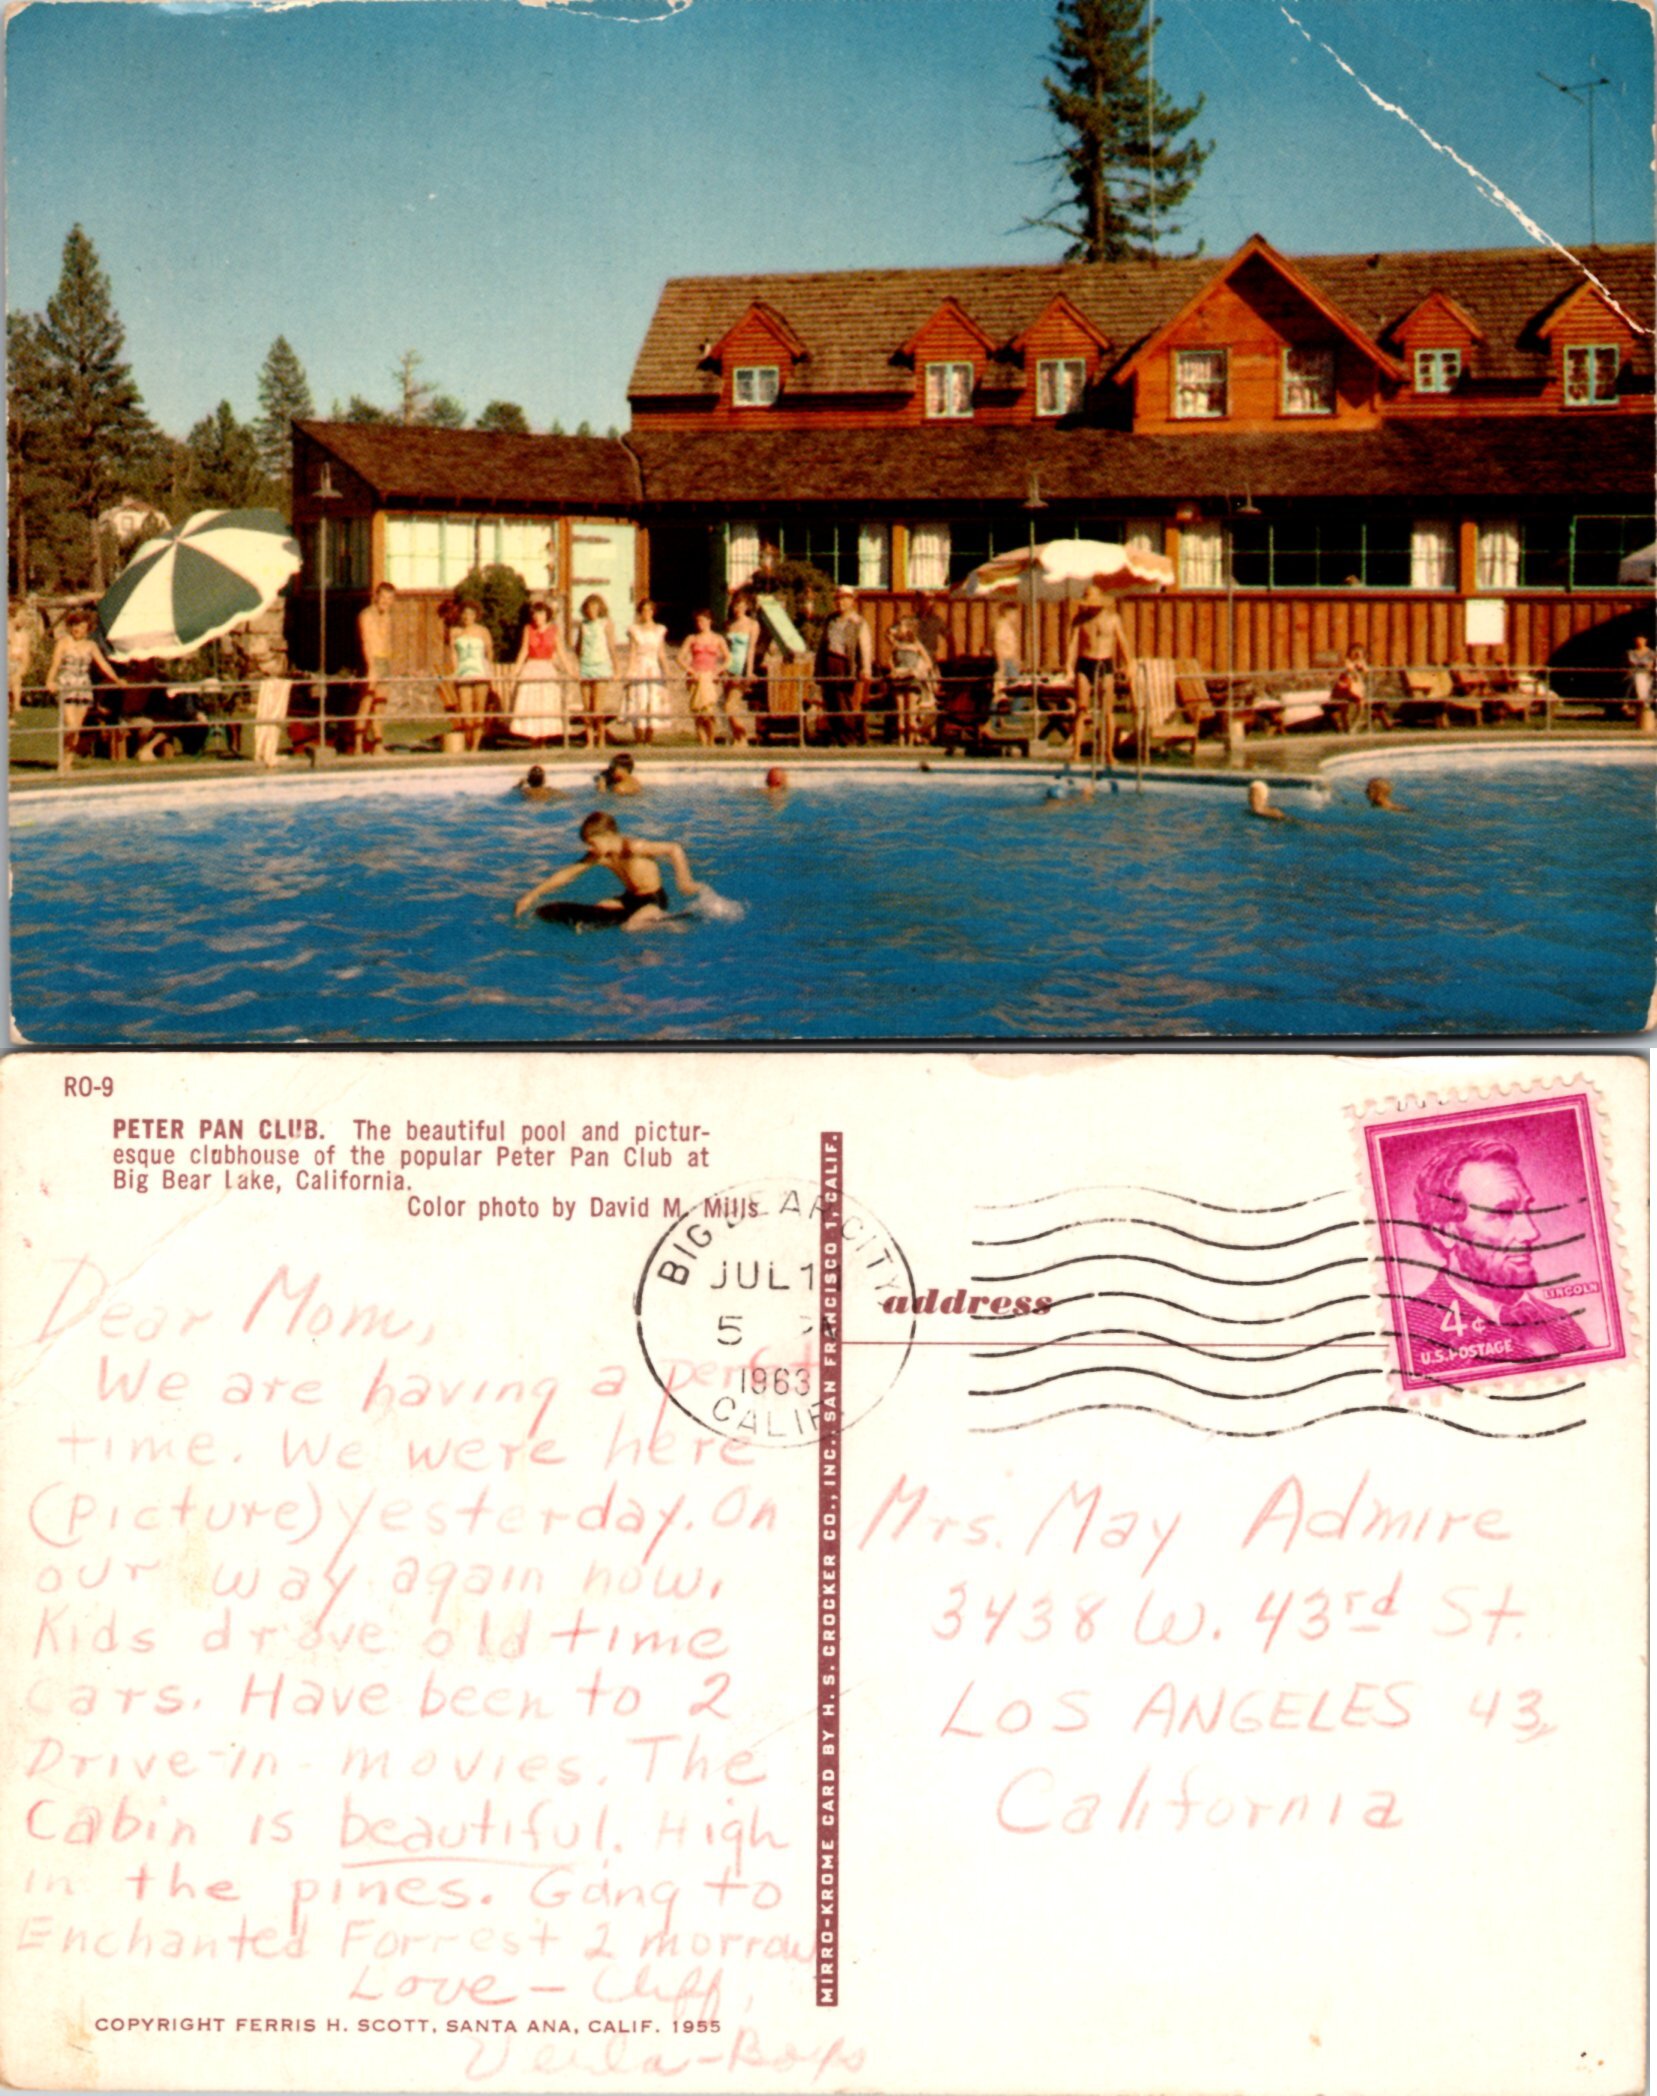 RO-9
PETER PAN CLUB. The beautiful pool and pictur-
esque clubhouse of the popular Peter Pan Club at
Big Bear Lake, California.
Color photo by David M. Mills
BIG BEAR CITY
JUL 1
5
1963
CALIF.
address
LINCOLN
4¢
U.S. POSTAGE
Dear Mom,
We are having a
time. We were here
(picture) yesterday. On
our way again now.
Kids drove old time
cars. Have been to 2
Drive-in-movies. The
Cabin is beautiful. High
in the pines. Going to
Enchanted Forrest 2 morrow
Love - Cliff,
Verla-Boys
COPYRIGHT FERRIS H. SCOTT, SANTA ANA, CALIF. 1955
MIRRO-KROME CARD BY H. S. CROCKER CO., INC., SAN FRANCISCO 1, CALIF.
Mrs. May Admire
3438 W. 43rd St.
LOS ANGELES 43,
California